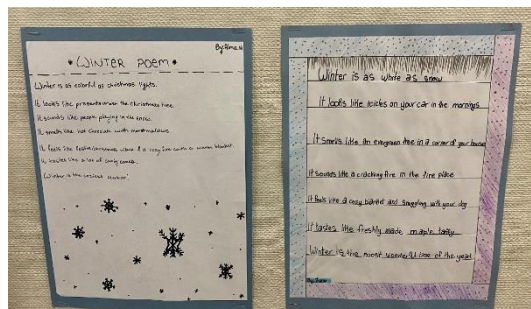 By: Alma N
WINTER POEM
Winter is as colorful as christmas lights.
It looks like presents under the Christmas tree.
It sounds like people playing in the snow.
It smells like hot chocolate with marshmallows.
It feels like a cozy fire with a warm blanket
It tastes like a lot of candy canes.
Winter is the coziest season!
Winter is as white as snow
It looks like icicles on your car in the mornings
It smells like an evergreen tree in a corner of your house
It sounds like a crackling fire in the fire place
It feels like a cozy blanket and snuggling with your dog
It tastes like freshly made maple taffy
Winter is the most wonderful time of the year!
By: